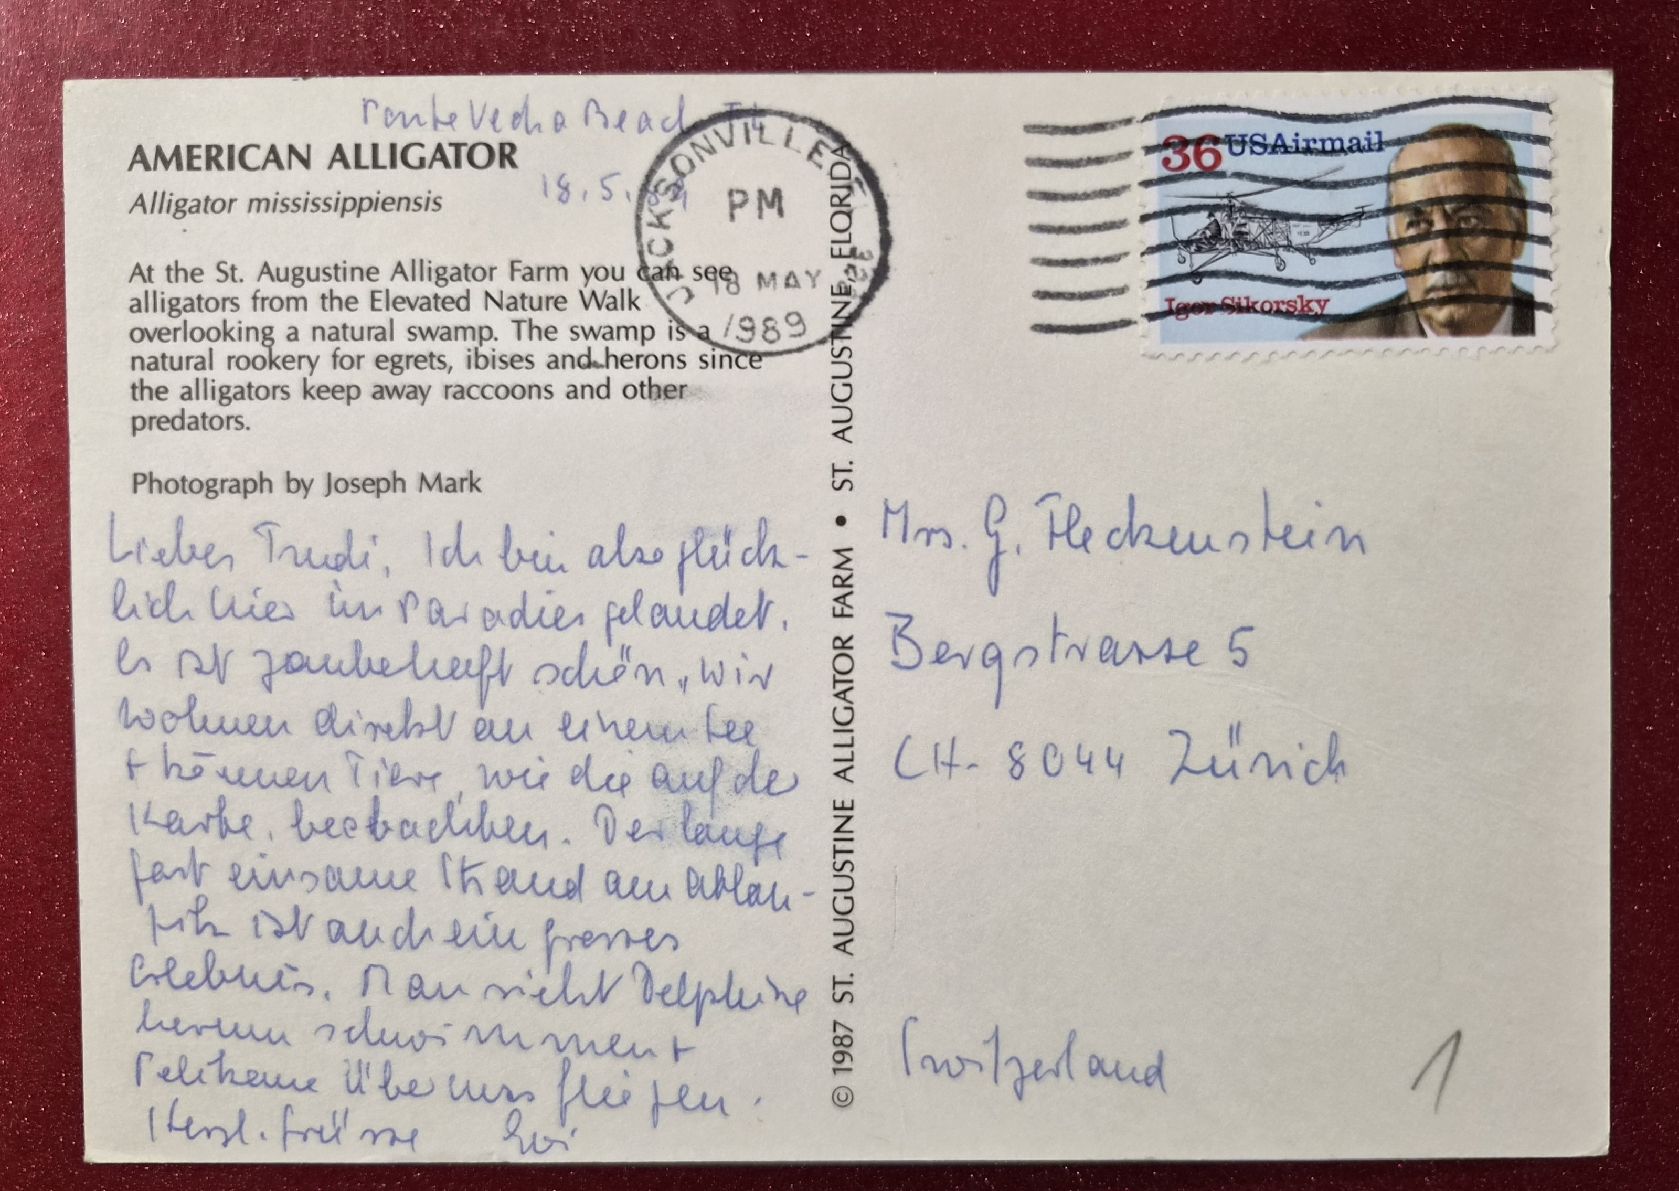 Ponte Vedra Beach
AMERICAN ALLIGATOR
Alligator mississippiensis
18.5.89
At the St. Augustine Alligator Farm you can see
alligators from the Elevated Nature Walk
overlooking a natural swamp. The swamp is a
natural rookery for egrets, ibises and herons since
the alligators keep away raccoons and other
predators.
Photograph by Joseph Mark
Liebes Trudi, Ich bin also glück-
lich hier im Paradies gelandet.
Es ist zauberhaft schön, wir
wohnen direkt an einem See
+ können Tiere, wie die auf der
Karte, beobachten. Der lange
fast einsame Strand am Atlan-
tik ist auch ein grosses
Erlebnis. Man sieht Delphine
herum schwimmen +
Pelikane über uns fliegen.
Herzl. Grüsse Evi
© 1987 ST. AUGUSTINE ALLIGATOR FARM • ST. AUGUSTINE, FLORIDA
JACKSONVILLE
PM
18 MAY
1989
36 USAirmail
Igor Sikorsky
Mrs. G. Fleckenstein
Bergstrasse 5
CH-8044 Zürich
Switzerland
1